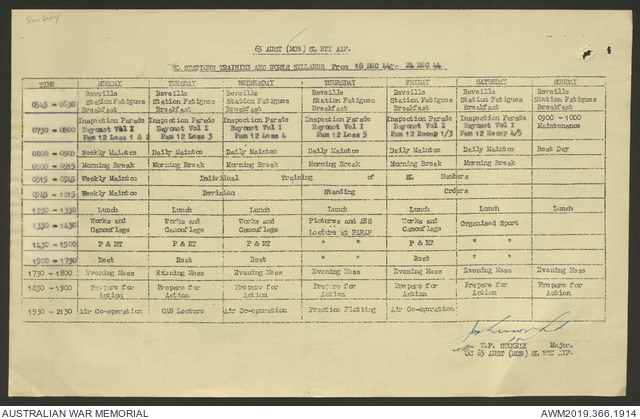 65 AUST (MOB) SL BTY AIF.
SL STATIONS TRAINING AND WORKS SYLLABUS From 18 DEC 44 to 24 DEC 44
TIME MONDAY TUESDAY WEDNESDAY THURSDAY FRIDAY SATURDAY SUNDAY
0545 - 0630 Reveille Reveille Reveille Reveille Reveille Reveille Reveille
Station Fatigues Station Fatigues Station Fatigues Station Fatigues Station Fatigues Station Fatigues Station Fatigues
Breakfast Breakfast Breakfast Breakfast Breakfast Breakfast Breakfast
0730 - 0800 Inspection Parade Inspection Parade Inspection Parade Inspection Parade Inspection Parade Inspection Parade 0900 - 1000
Bayonet Vol I Bayonet Vol I Bayonet Vol I Bayonet Vol I Bayonet Vol I Bayonet Vol I Maintenance
Pam 12 Less 1 & 2 Pam 12 Less 3 Pam 12 Less 4 Pam 12 Less 5 Pam 12 Recap 1/3 Pam 12 Recap 4/5
0800 - 0900 Weekly Maintce Daily Maintce Daily Maintce Daily Maintce Daily Maintce Daily Maintce Rest Day
0900 - 0915 Morning Break Morning Break Morning Break Morning Break Morning Break Morning Break
0915 - 0945 Weekly Maintce Individual Training of SL Numbers
0945 - 1215 Weekly Maintce Revision Standing Orders
1230 - 1330 Lunch Lunch Lunch Lunch Lunch Lunch Lunch
1330 - 1430 Works and Works and Works and Pictures and Works and Organised Sport
Camouflage Camouflage Camouflage Lecture at Camouflage
1430 - 1500 P & RT P & RT P & RT " " P & RT " "
1500 - 1730 Rest Rest Rest " " Rest " "
1730 - 1800 Evening Mess Evening Mess Evening Mess Evening Mess Evening Mess Evening Mess
1830 - 1900 Prepare for Prepare for Prepare for Prepare for Prepare for Prepare for Prepare for
Action Action Action Action Action Action Action
1930 - 2130 Air Co-operation CAB Lecture Air Co-operation Fraction Plotting Air Co-operation
Major.
OC 65 AUST (MOB) SL BTY AIF.
AUSTRALIAN WAR MEMORIAL AWM2019.366.1914